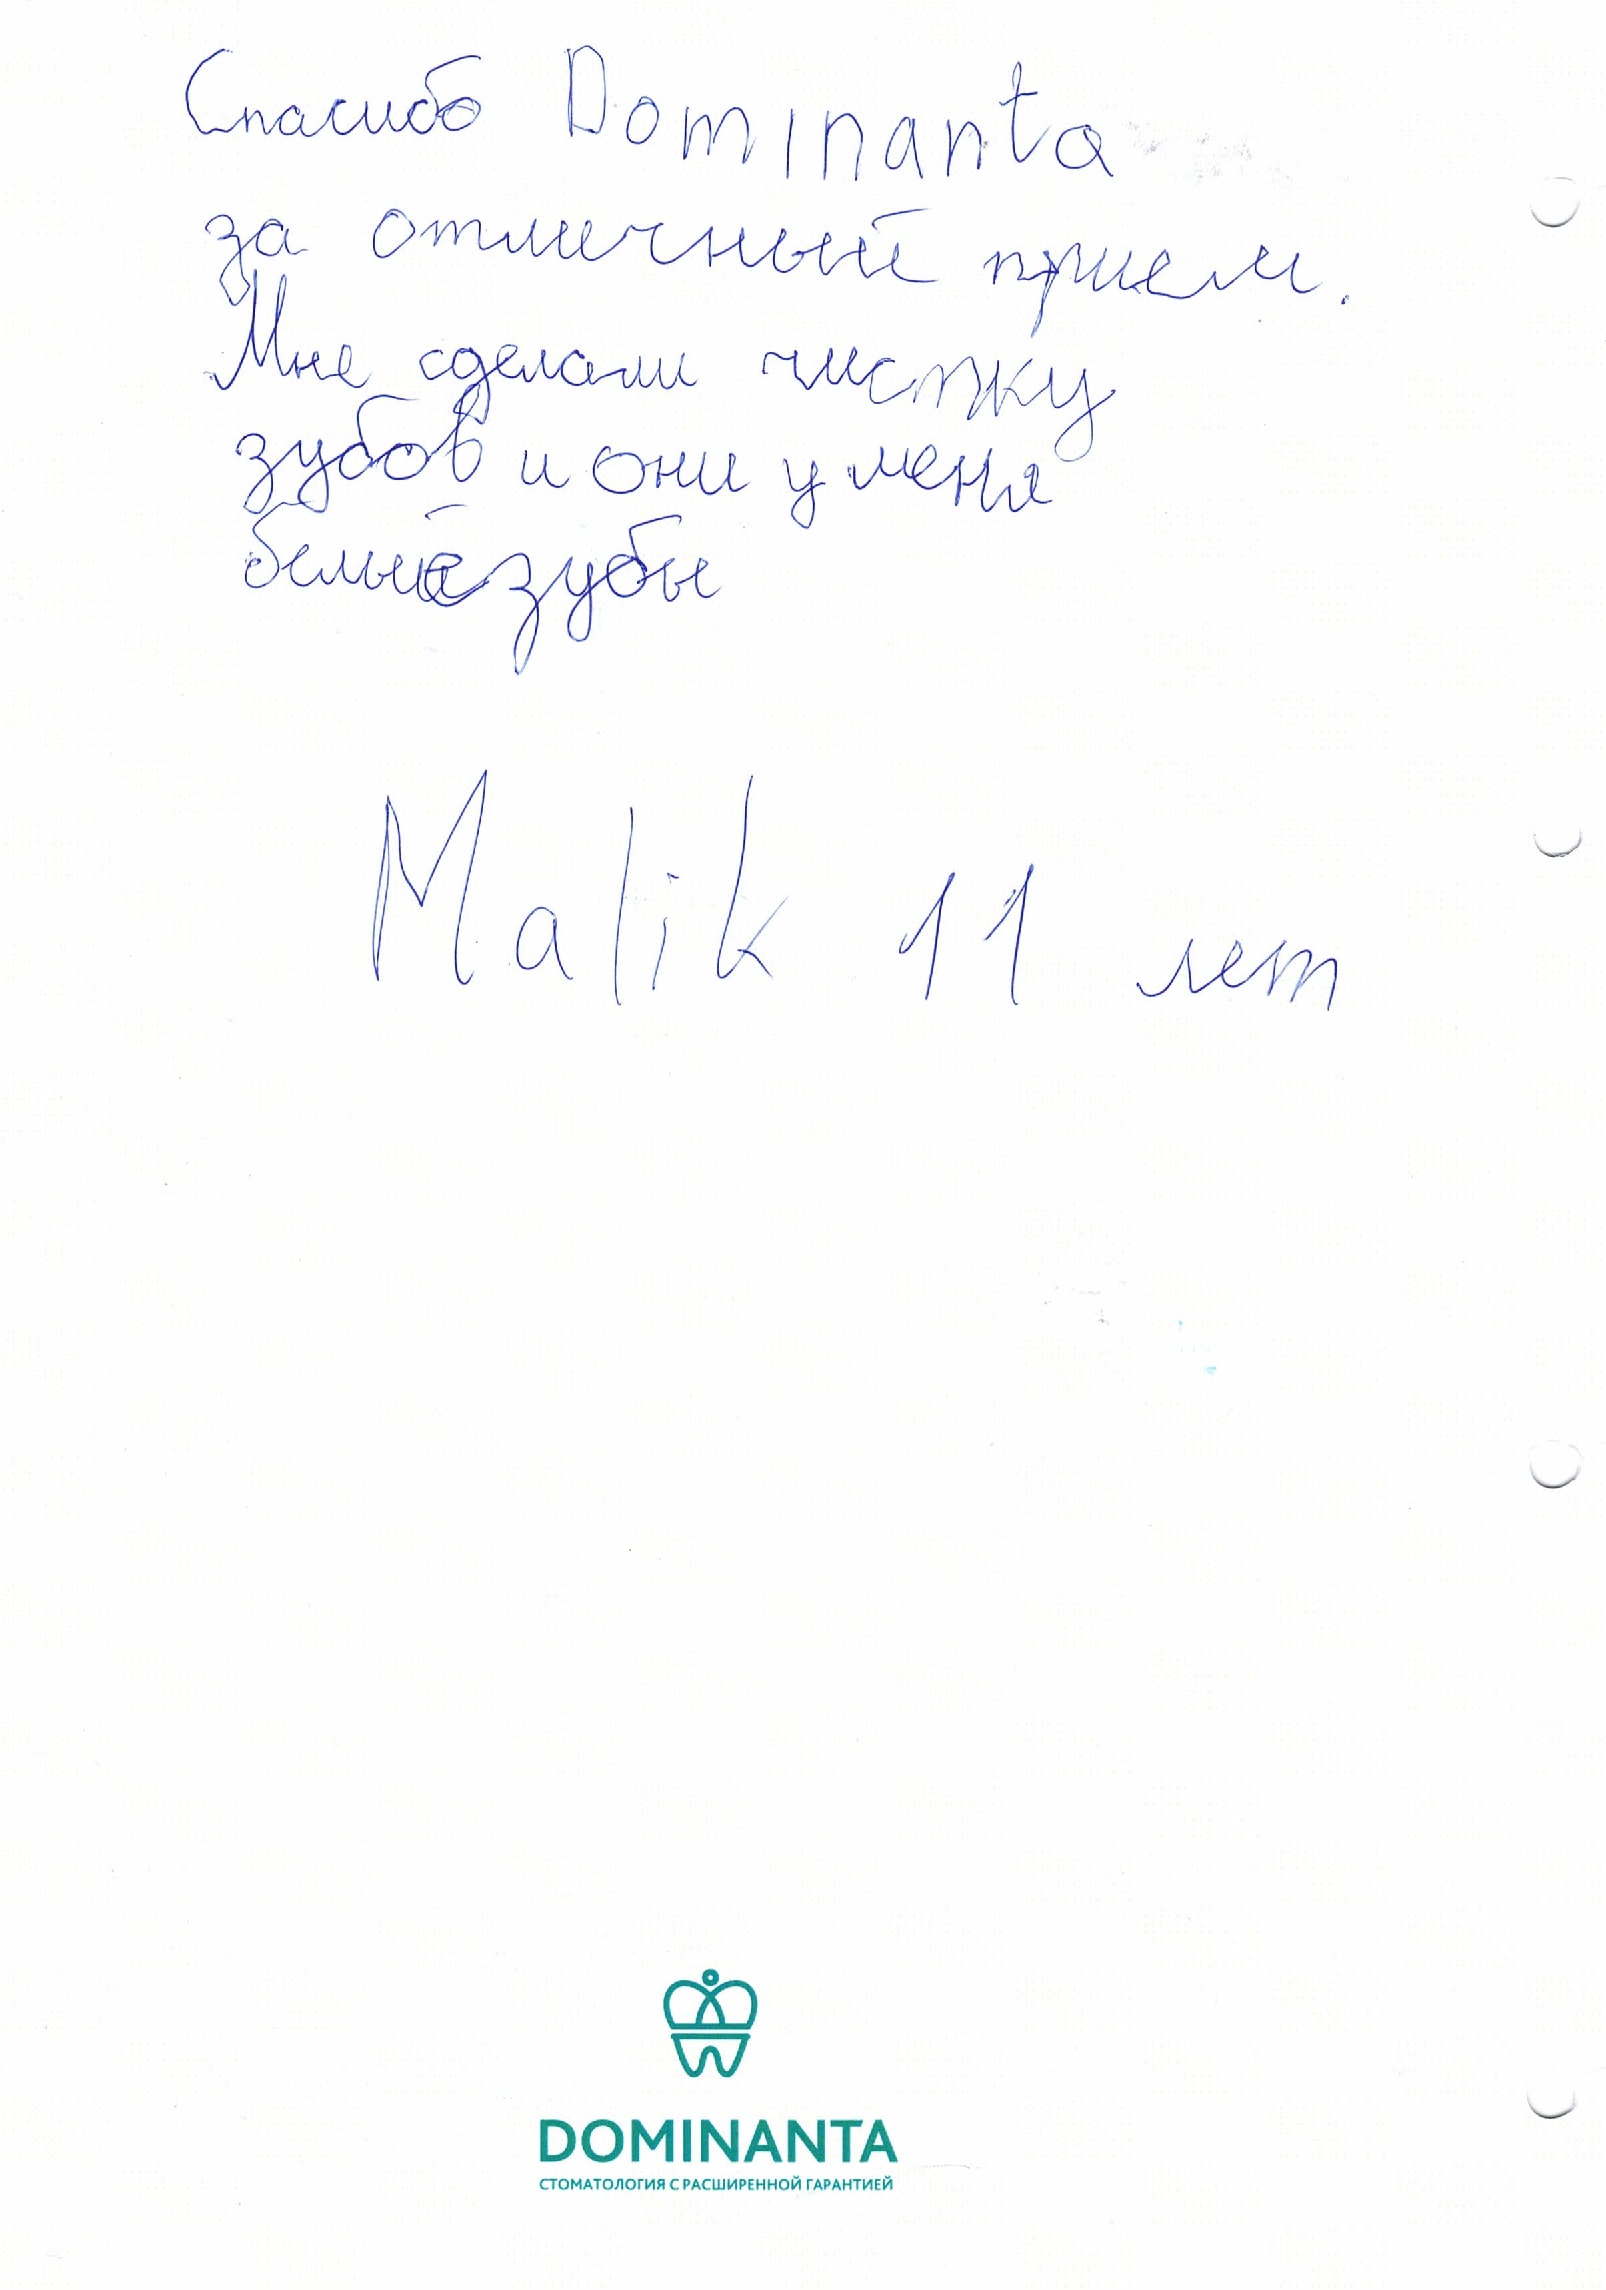 Спасибо Dominanta
за отличный прием.
Мне сделали чистку
зубов и они у меня
белые зубы
Malik 11 лет
DOMINANTA
СТОМАТОЛОГИЯ С РАСШИРЕННОЙ ГАРАНТИЕЙ